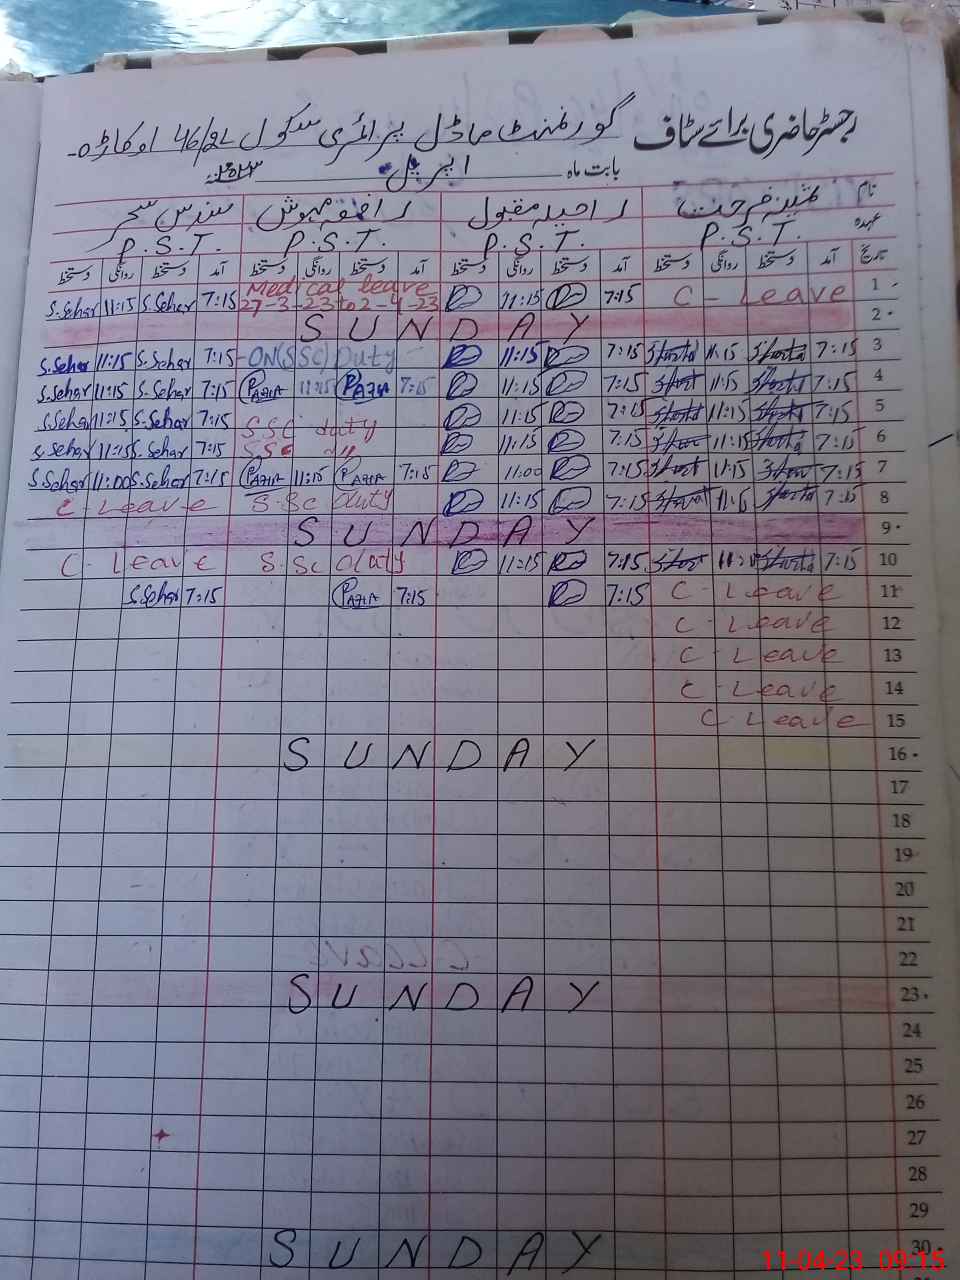 رجسٹر حاضری برائے سٹاف گورنمنٹ ماڈل پرائمری سکول 46/2L اوکاڑہ۔
بابت ماہ اپریل ۲۰۲۳ء
نام ثمینہ فرحت راحیلہ مقبول رافعہ مہوش سندس سحر
عہدہ P.S.T. P.S.T. P.S.T. P.S.T.
تاریخ آمد دستخط روانگی دستخط آمد دستخط روانگی دستخط آمد دستخط روانگی دستخط آمد دستخط روانگی دستخط
S.Sehar 11:15 S.Sehar 7:15 Medical leave 27-3-23 to 2-4-23 11:15 7:15 C-Leave 1
SUNDAY 2
S.Sehar 11:15 S.Sehar 7:15 ON(SSC) Duty 11:15 7:15 11:15 7:15 3
S.Sehar 11:15 S.Sehar 7:15 11:15 7:15 11:15 7:15 11:15 7:15 4
S.Sehar 11:15 S.Sehar 7:15 SSC duty 11:15 7:15 11:15 7:15 5
S.Sehar 11:15 S.Sehar 7:15 SSC 11:15 7:15 11:15 7:15 6
S.Sehar 11:00 S.Sehar 7:15 11:15 7:15 11:00 7:15 11:15 7:15 7
C-Leave S.Sc duty 11:15 7:15 7:15 8
SUNDAY 9
C-Leave S.Sc duty 11:15 7:15 7:15 10
S.Sehar 7:15 7:15 7:15 C-Leave 11
C-Leave 12
C-Leave 13
C-Leave 14
C-Leave 15
SUNDAY 16
17
18
19
20
21
22
SUNDAY 23
24
25
26
27
28
29
SUNDAY 30
11-04-23 09:15